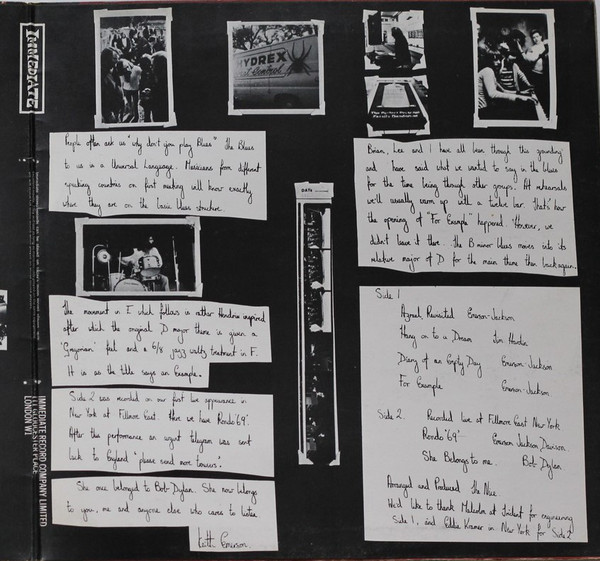 IMMEDIATE
HYDREX
Pest Control
People often ask us "why don't you play Blues" The Blues
to us is a Universal Language. Musicians from different
speaking countries on first meeting will know exactly
where they are on the basic blues structure.
Brian, Lee and I have all been through this grounding
and have said what we wanted to say in the blues
for the time being through other groups. At rehearsals
we'll usually warm up with a twelve bar. That's how
the opening of "For Example" happened. However, we
didn't leave it there. The B minor blues moves into its
relative major of D for the main theme then back again.
DATE
The movement in E which follows is rather Hendrix inspired
after which the original D major theme is given a
'Gregorian' feel and a 6/8 jazz waltz treatment in F.
It is as the title says an Example.
Side 2 was recorded on our first live appearance in
New York at Fillmore East. Here we have Rondo '69'.
After this performance an urgent telegram was sent
back to England "please send more trousers".
She once belonged to Bob Dylan. She now belongs
to you, me and anyone else who cares to listen.
Keith Emerson.
Side 1
Azrael Revisited Emerson-Jackson
Hang on to a Dream Tim Hardin
Diary of an Empty Day Emerson-Jackson
For Example Emerson-Jackson
Side 2. Recorded live at Fillmore East New York
Rondo '69' Emerson Jackson Davison.
She Belongs to me. Bob Dylan
Arranged and Produced The Nice.
We'd like to thank Malcolm at Trident for engineering
Side 1, and Eddie Kramer in New York for Side 2
IMMEDIATE RECORD COMPANY LIMITED
GLOUCESTER PLACE
LONDON W1